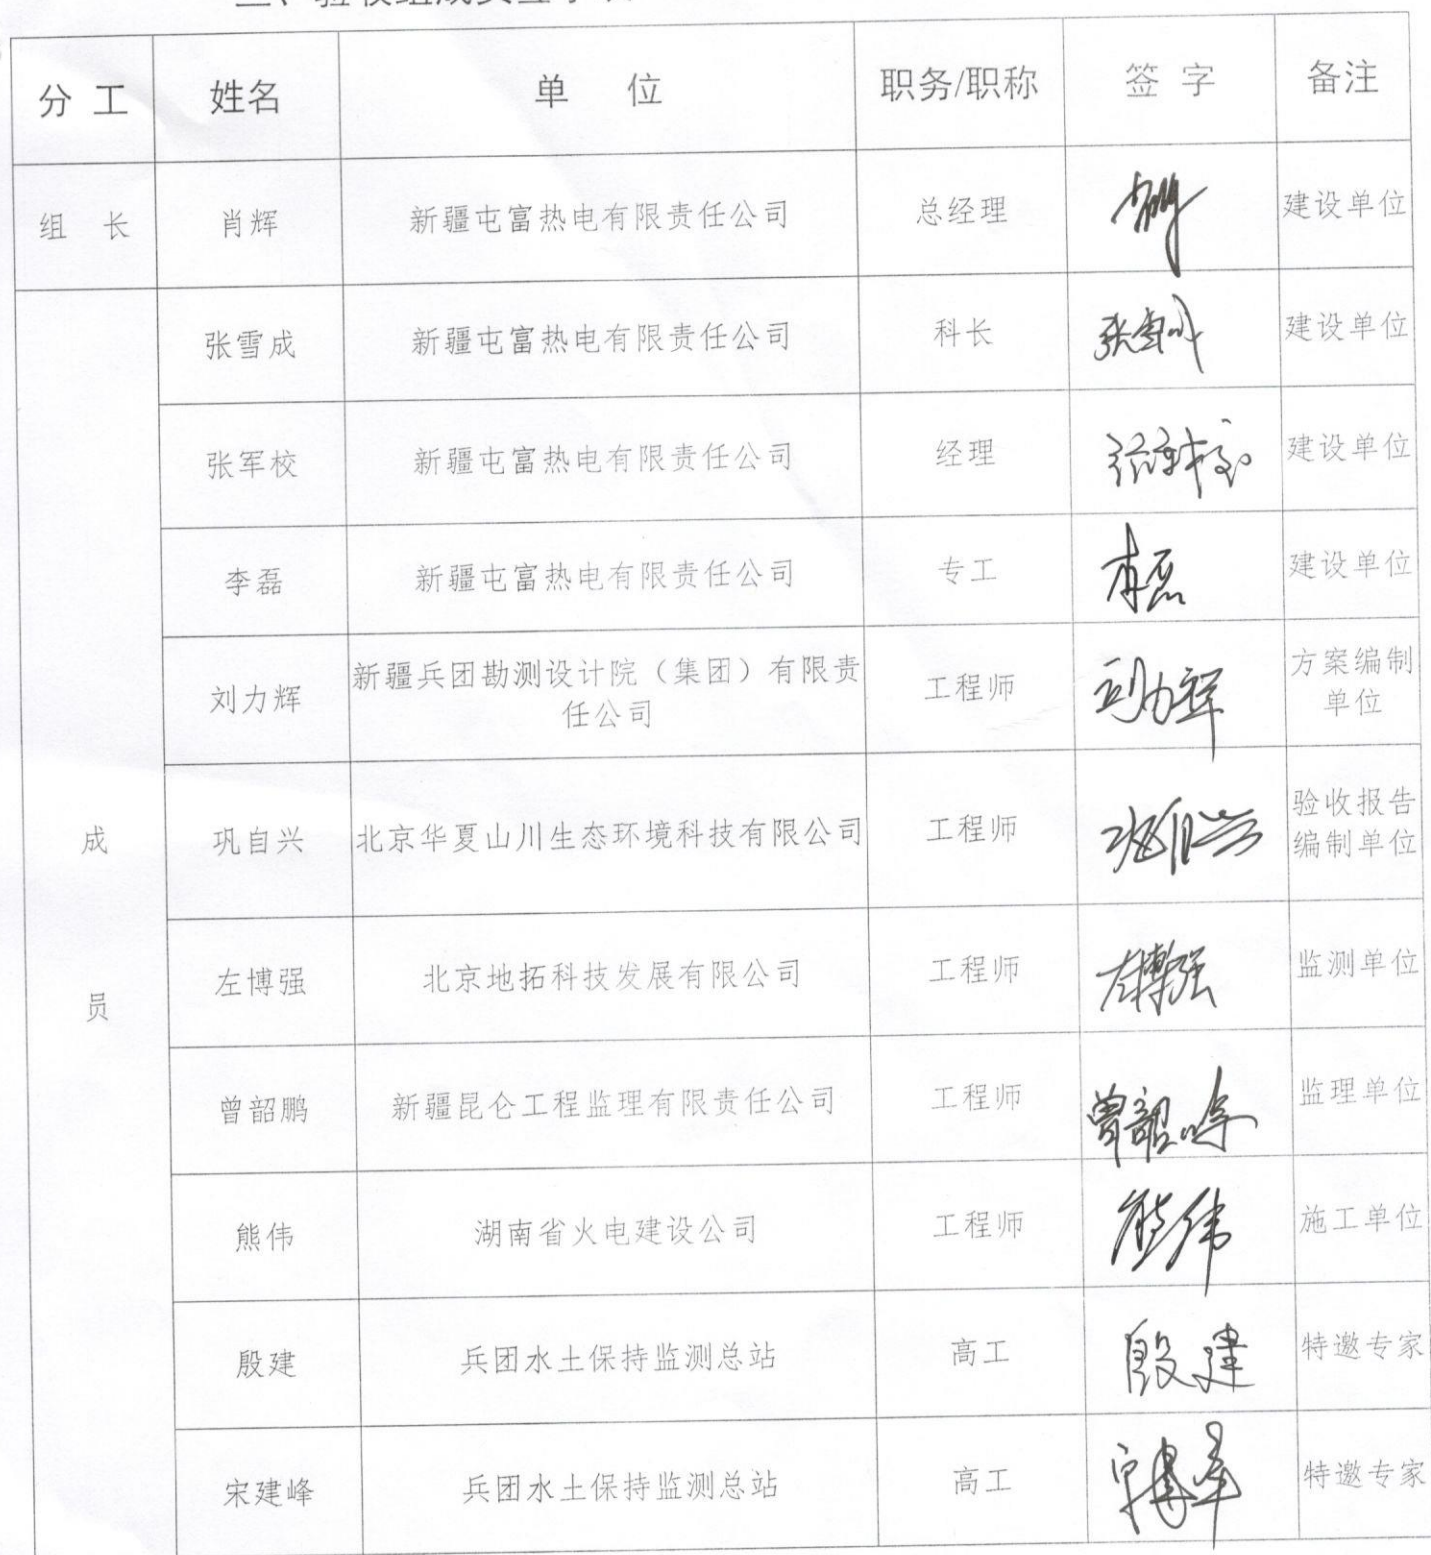 分 工 姓名 单 位 职务/职称 签 字 备注
组 长 肖辉 新疆屯富热电有限责任公司 总经理 建设单位
张雪成 新疆屯富热电有限责任公司 科长 张雪成 建设单位
张军校 新疆屯富热电有限责任公司 经理 张军校 建设单位
李磊 新疆屯富热电有限责任公司 专工 李磊 建设单位
刘力辉 新疆兵团勘测设计院（集团）有限责任公司 工程师 刘力辉 方案编制单位
成 员
巩自兴 北京华夏山川生态环境科技有限公司 工程师 验收报告编制单位
左博强 北京地拓科技发展有限公司 工程师 左博强 监测单位
曾韶鹏 新疆昆仑工程监理有限责任公司 工程师 曾韶鹏 监理单位
熊伟 湖南省火电建设公司 工程师 熊伟 施工单位
殷建 兵团水土保持监测总站 高工 殷建 特邀专家
宋建峰 兵团水土保持监测总站 高工 宋建峰 特邀专家